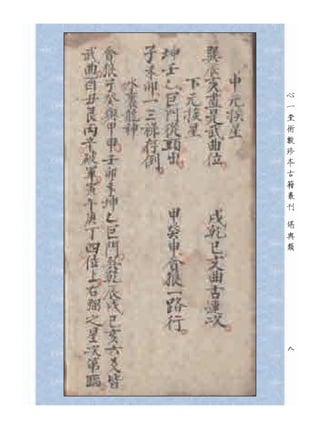 心一堂術數珍本古籍叢刊 堪輿類
八
中元挨星
巽辰亥盡是武曲位 戌乾巳文曲古連次
下元挨星
坤壬乙巨門從頭出 甲癸申貪狼一路行
子未卯一三祿存倒
水裏龍神
貪狼子癸與甲申壬卯未坤乙巨門巽乾辰戌巳亥六爻皆
武曲酉丑艮丙辛破軍寅午庚丁四位上右弼之星次第臨